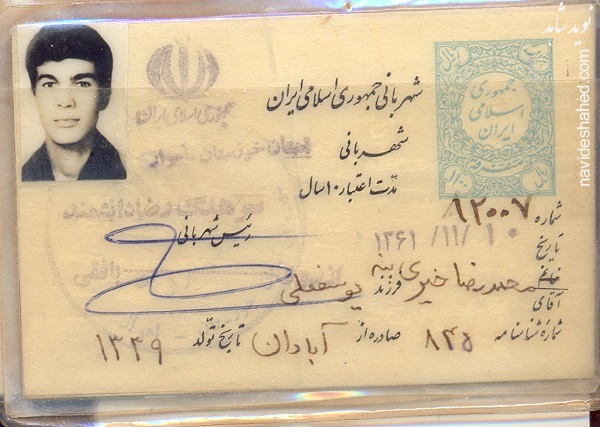 نوید شاهد
navideshahed.com
جمهوری اسلامی ایران
ریال
جمهوری
اسلامی
ایران
ریال
شهربانی جمهوری اسلامی ایران
شهربانی
مدّت اعتبار ۱۰ سال
رئیس شهربانی
شماره ۸۲۰۰۷
تاریخ ۱۳۶۱/۱۱/۱۰
خانم
آقای محمدرضا خیری فرزند یوسفعلی
شماره شناسنامه ۸۴۵ صادره از آبادان تاریخ تولّد ۱۳۳۹